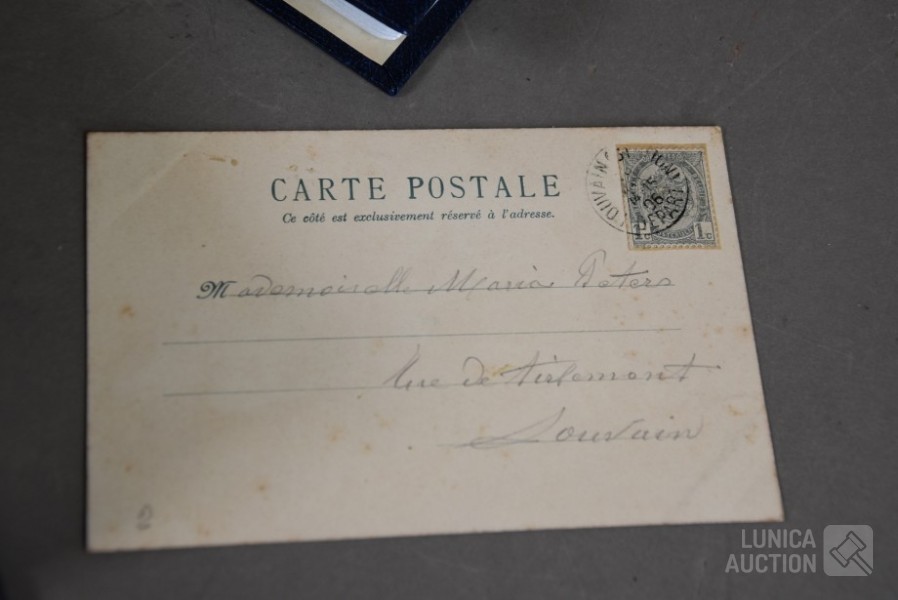 CARTE POSTALE
Ce côté est exclusivement réservé à l'adresse.
Mademoiselle Maria Peters
Rue de Tirlemont
Louvain
LOUVAIN
DEPART
1c 1c
LUNICA
AUCTION